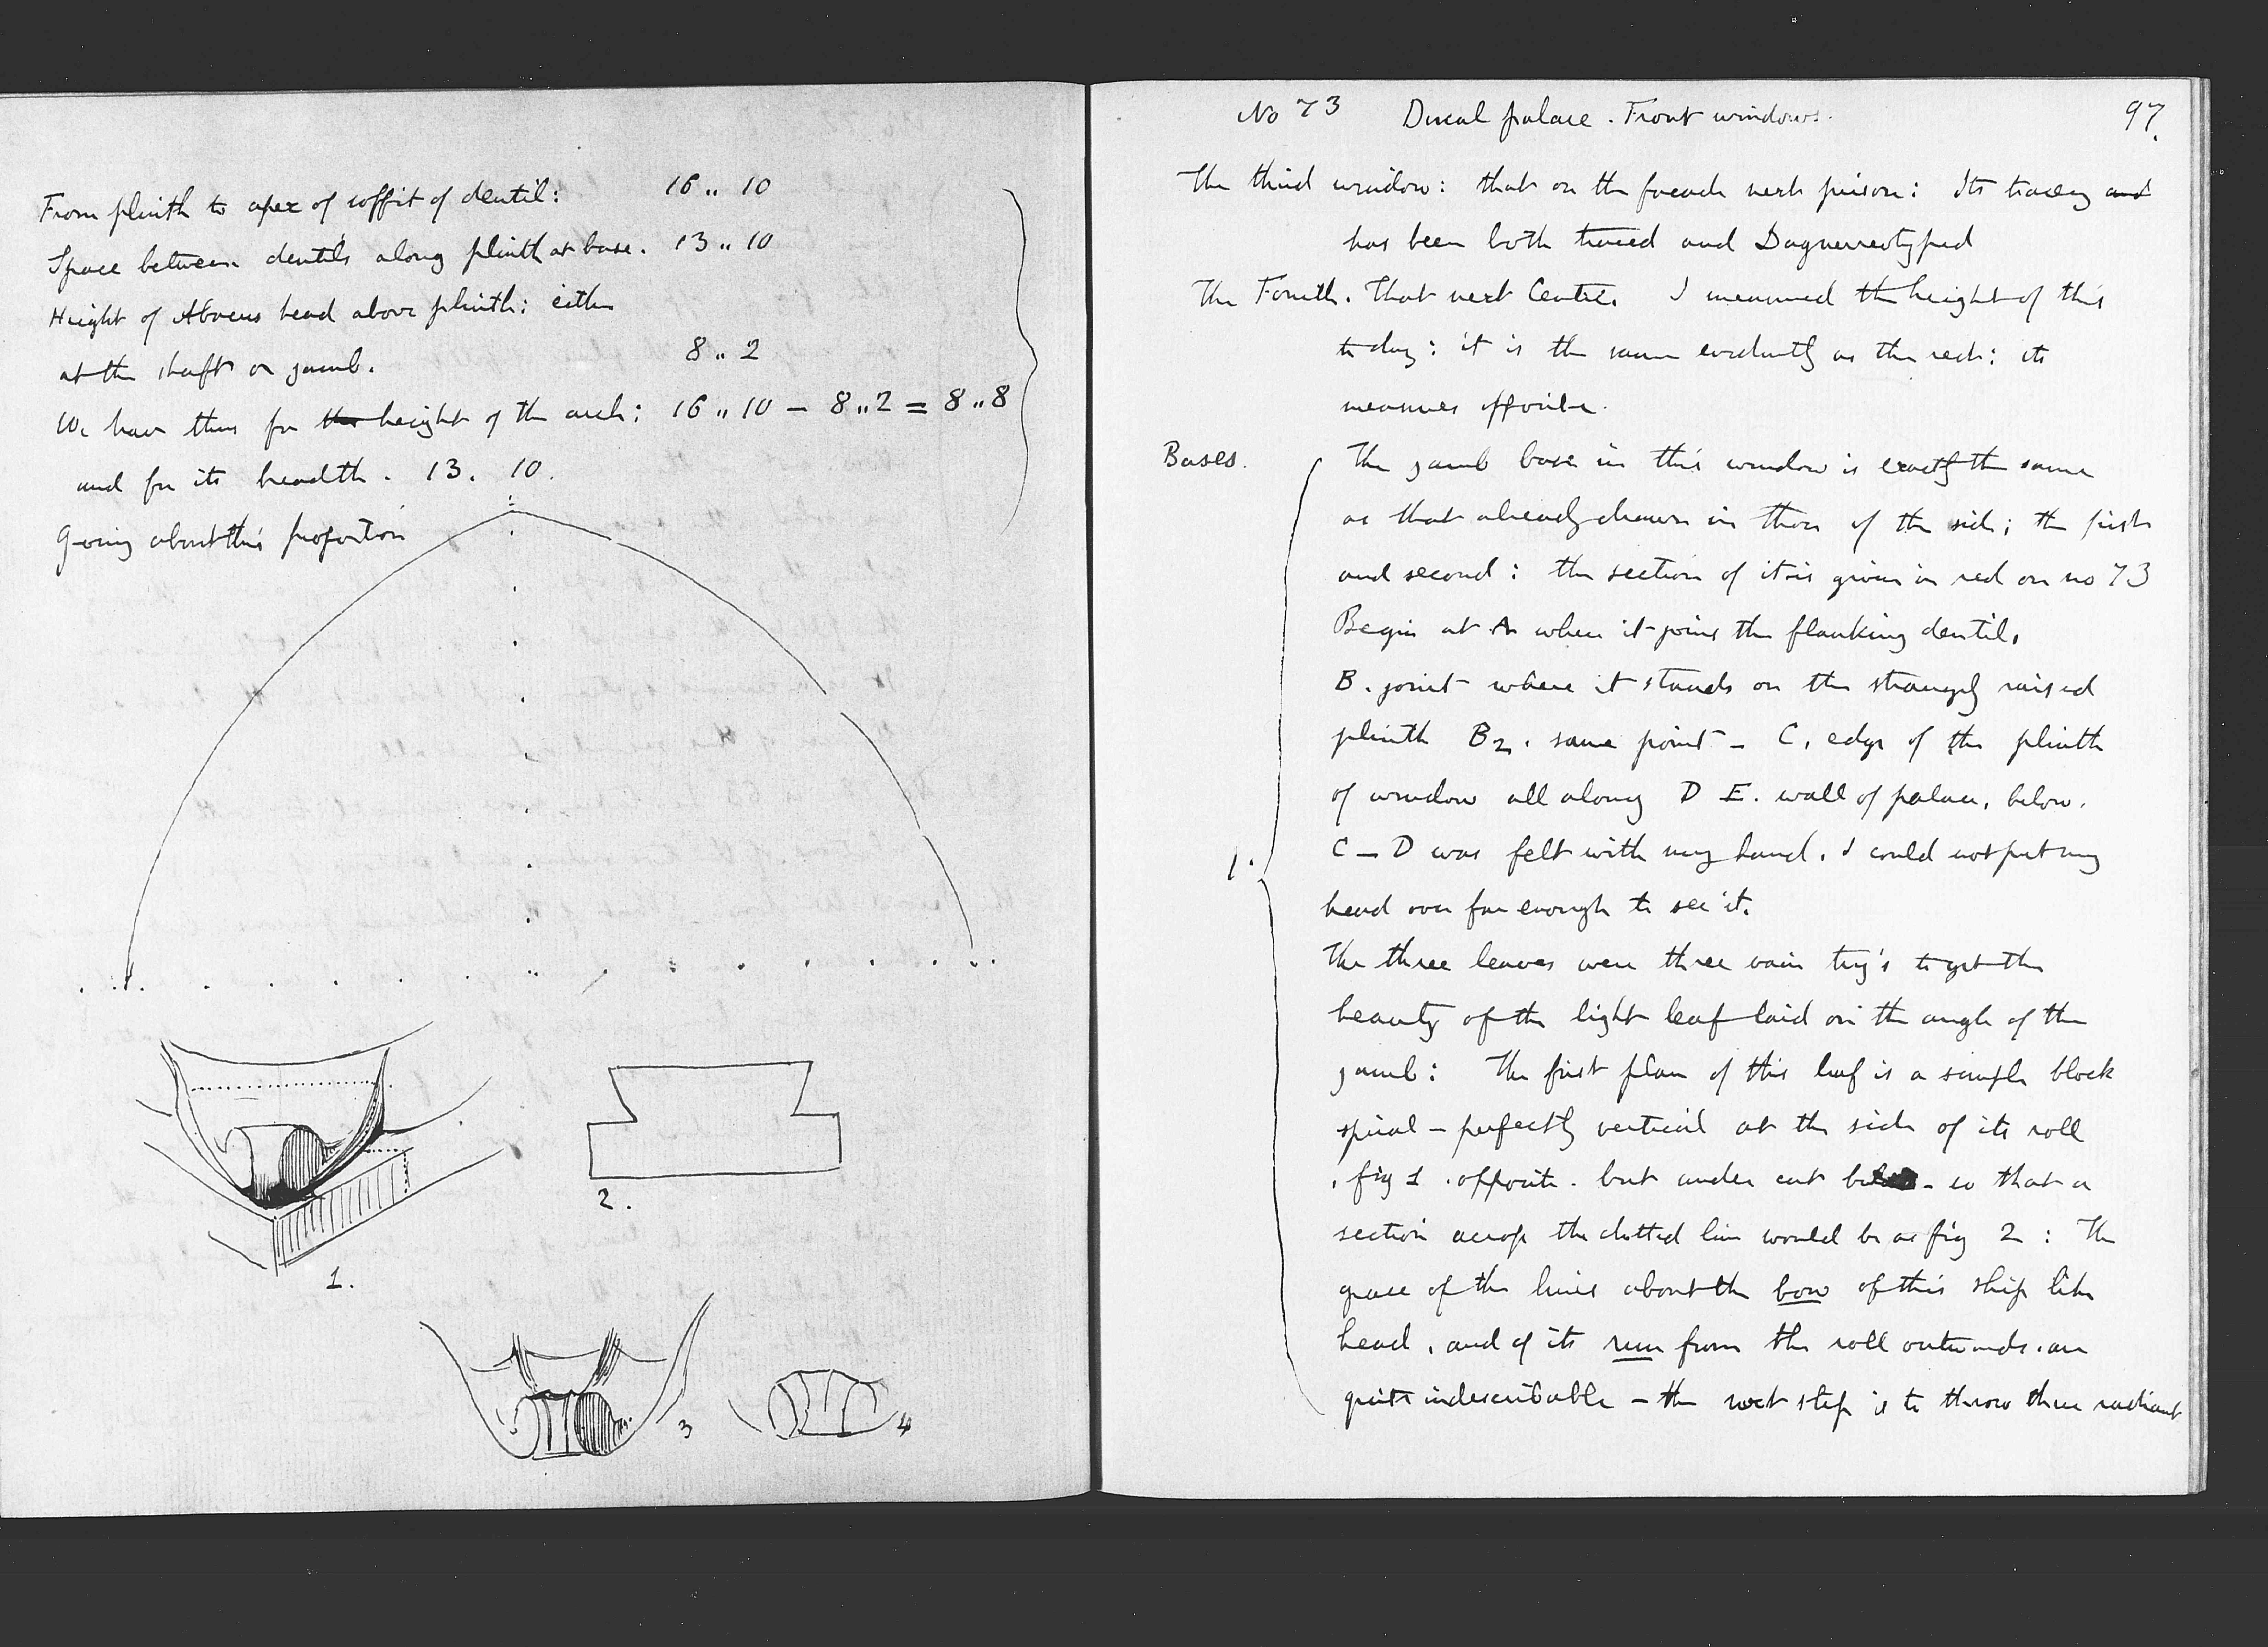 From plinth to apex of soffit of dentil: 16 .. 10
Space between dentils along plinth at base. 13 .. 10
Height of Abacus head above plinth: either
at the shaft or jamb. 8 .. 2
We have thus for the height of the arch: 16 .. 10 – 8 .. 2 = 8 .. 8
and for its breadth. 13. 10.
Going about this proportion
1.
2.
3
4
No 73 Ducal palace. Front windows. 97.
The third window: that on the facade next prison: Its tracery and
has been both traced and Daguerreotyped
The Fourth. That next Centre. I measured the height of this
to day: it is the same evidently as the rest: its
measures opposite.
Bases. The jamb base in this window is exactly the same
as that already drawn in those of the side; the first
and second: the section of it is given in red on no 73
Begin at A where it joins the flanking dentil.
B. joint where it stands on the strangely raised
plinth B2. same point – C. edge of the plinth
of window all along D E. wall of palace, below.
C – D was felt with my hand. I could not put my
head over far enough to see it.
1.
The three leaves were three vain try's to get the
beauty of the light leaf laid on the angle of the
jamb: The first plan of this leaf is a simple block
spiral – perfectly vertical at the side of its roll
. fig 1 . opposite. but under cut – so that a
section across the dotted line would be as fig 2 : The
grace of the lines about the bow of this ship like
head, and of its run from the roll outwards. are
quite indescribable – the next step is to throw three radiant